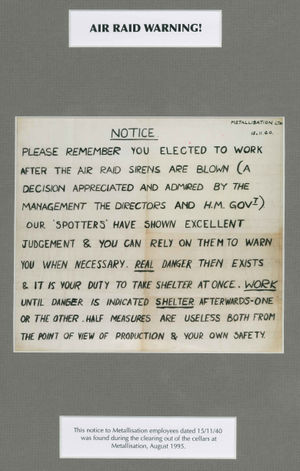 AIR RAID WARNING!
METALLISATION LTD
15.11.40.
NOTICE
PLEASE REMEMBER YOU ELECTED TO WORK
AFTER THE AIR RAID SIRENS ARE BLOWN (A
DECISION APPRECIATED AND ADMIRED BY THE
MANAGEMENT THE DIRECTORS AND H.M. GOVT)
OUR 'SPOTTERS' HAVE SHOWN EXCELLENT
JUDGEMENT & YOU CAN RELY ON THEM TO WARN
YOU WHEN NECESSARY. REAL DANGER THEN EXISTS
& IT IS YOUR DUTY TO TAKE SHELTER AT ONCE. WORK
UNTIL DANGER IS INDICATED SHELTER AFTERWARDS-ONE
OR THE OTHER. HALF MEASURES ARE USELESS BOTH FROM
THE POINT OF VIEW OF PRODUCTION & YOUR OWN SAFETY.
This notice to Metallisation employees dated 15/11/40
was found during the clearing out of the cellars at
Metallisation, August 1995.